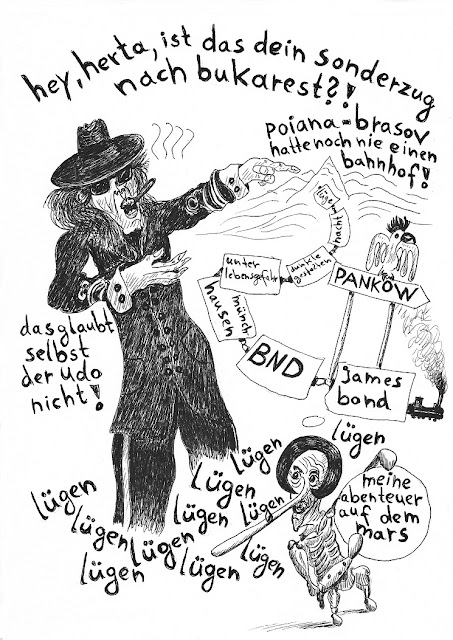 hey, herta, ist das dein sonderzug
nach bukarest?!
poiana-brasov
hatte noch nie einen
bahnhof!
nacht
unter
lebensgefahr
dunkle
gestalten
PANKOW
münch
hausen
BND
james
bond
das glaubt
selbst
der udo
nicht!
lügen
lügen
lügen
lügen
lügen
lügen
lügen
lügen
lügen
lügen
lügen
meine
abenteuer
auf dem
mars